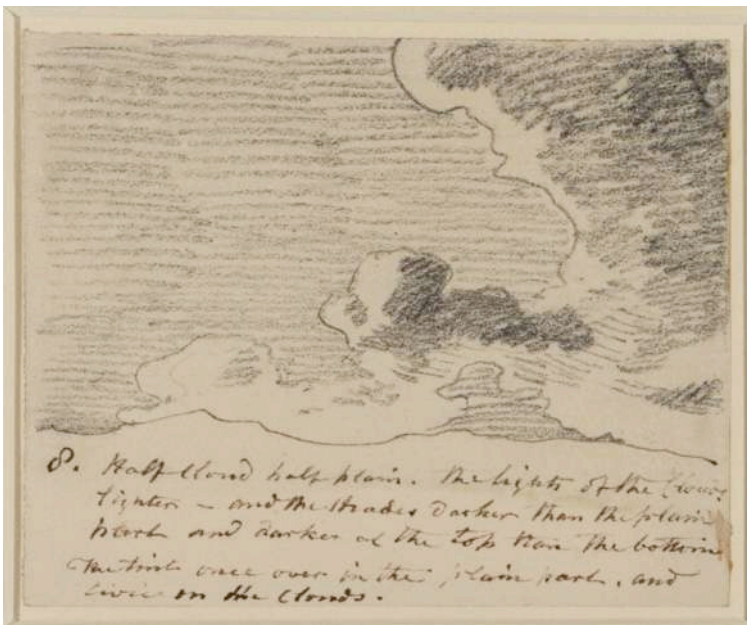 8. Half Cloud half plain. the lights of the Clouds
lighter – and the shades darker than the plain
part and darker at the top than the bottom
The tint once over in the plain part, and
twice in the Clouds.